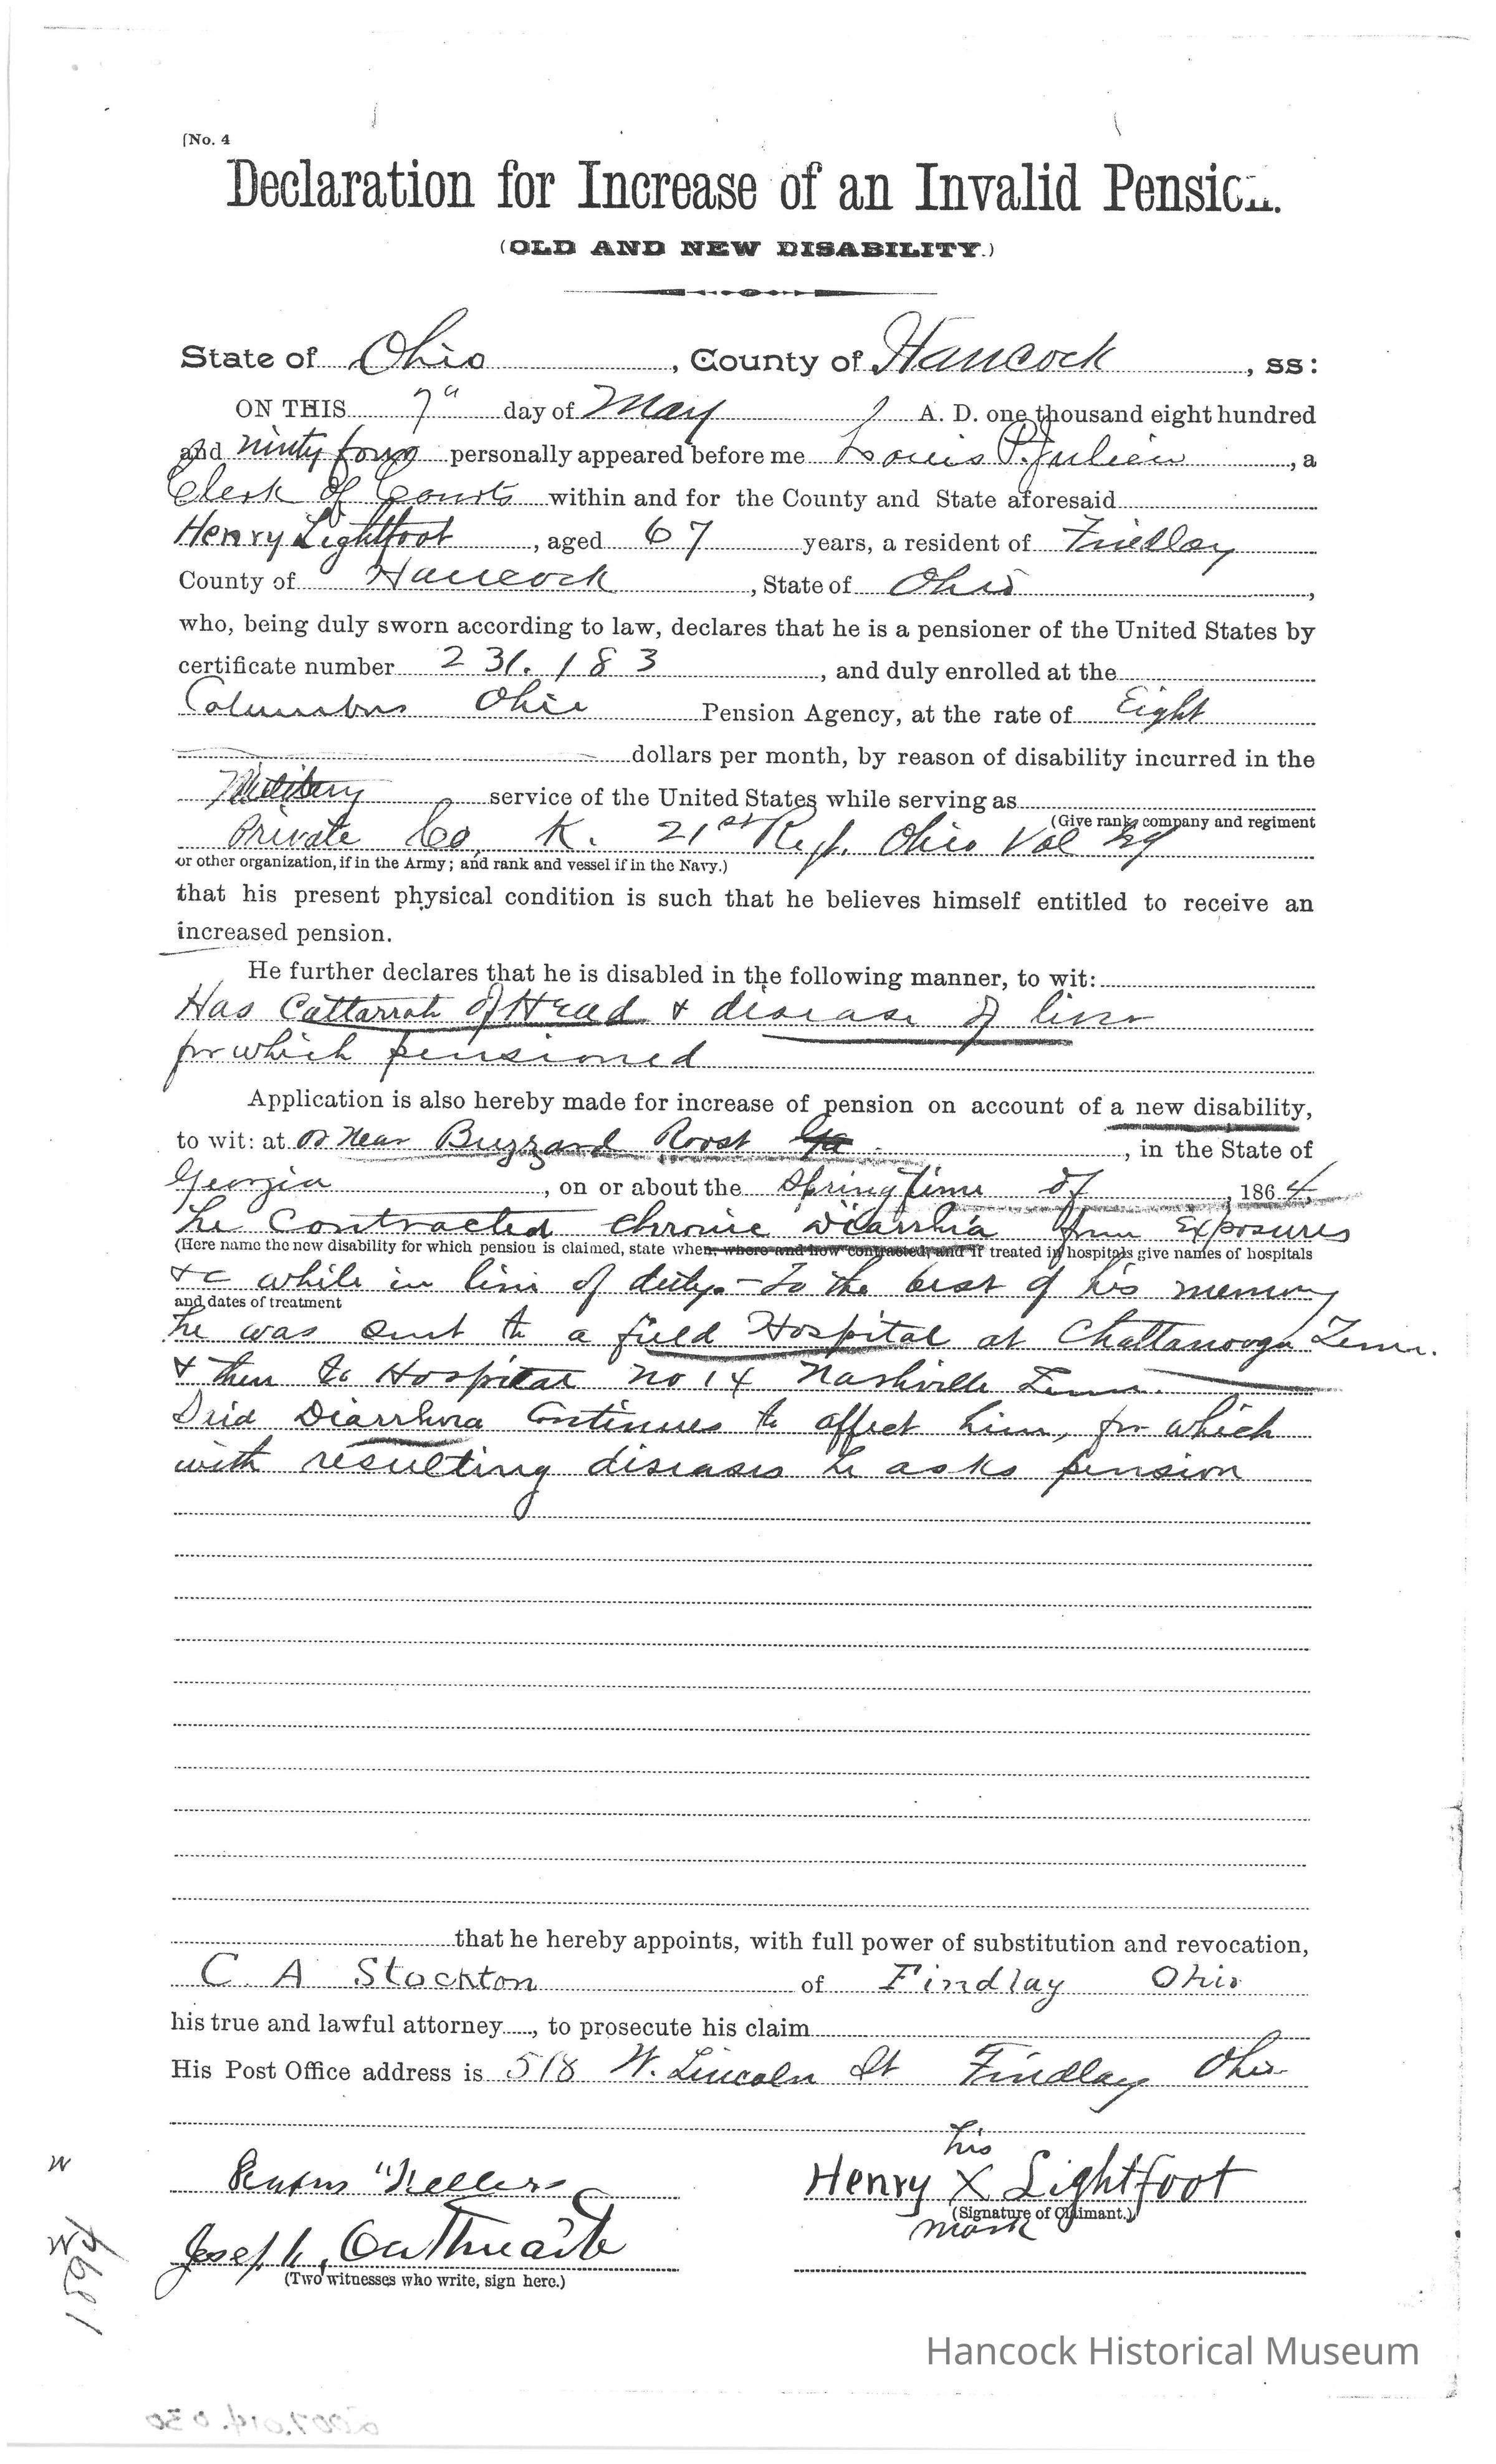 [No. 4
Declaration for Increase of an Invalid Pension.
(OLD AND NEW DISABILITY.)
State of Ohio, County of Hancock, ss:
ON THIS 7" day of May A. D. one thousand eight hundred
and ninty four personally appeared before me Louis P. Julien, a
Clerk of Courts within and for the County and State aforesaid
Henry Lightfoot, aged 67 years, a resident of Findlay
County of Hancock, State of Ohio,
who, being duly sworn according to law, declares that he is a pensioner of the United States by
certificate number 231.183, and duly enrolled at the
Columbus Ohio Pension Agency, at the rate of Eight
dollars per month, by reason of disability incurred in the
Military service of the United States while serving as
(Give rank, company and regiment
Private Co. K. 21st Regt. Ohio Vol
or other organization, if in the Army; and rank and vessel if in the Navy.)
that his present physical condition is such that he believes himself entitled to receive an
increased pension.
He further declares that he is disabled in the following manner, to wit:
Has Cattarrah of Head & disease of liver
for which pensioned
Application is also hereby made for increase of pension on account of a new disability,
to wit: at or near Buzzard Roost Ga, in the State of
Georgia, on or about the Spring time of, 1864,
he Contracted Chronic Diarrhia from Exposures
(Here name the new disability for which pension is claimed, state when, where and how contracted, and if treated in hospitals give names of hospitals
&c while in line of duty. - To the best of his memory
and dates of treatment
he was sent to a field Hospital at Chattanooga Tenn.
& then to Hospital No 14 Nashville Tenn.
Said Diarrhœa Continues to affect him, for which
with resulting diseases he asks pension
that he hereby appoints, with full power of substitution and revocation,
C. A Stockton of Findlay Ohio
his true and lawful attorney, to prosecute his claim
His Post Office address is 518 W. Lincoln St Findlay Ohio
his
Henry X Lightfoot
(Signature of Claimant.)
mark
Joseph Outhwaite
(Two witnesses who write, sign here.)
1894
Hancock Historical Museum
2007.014.030